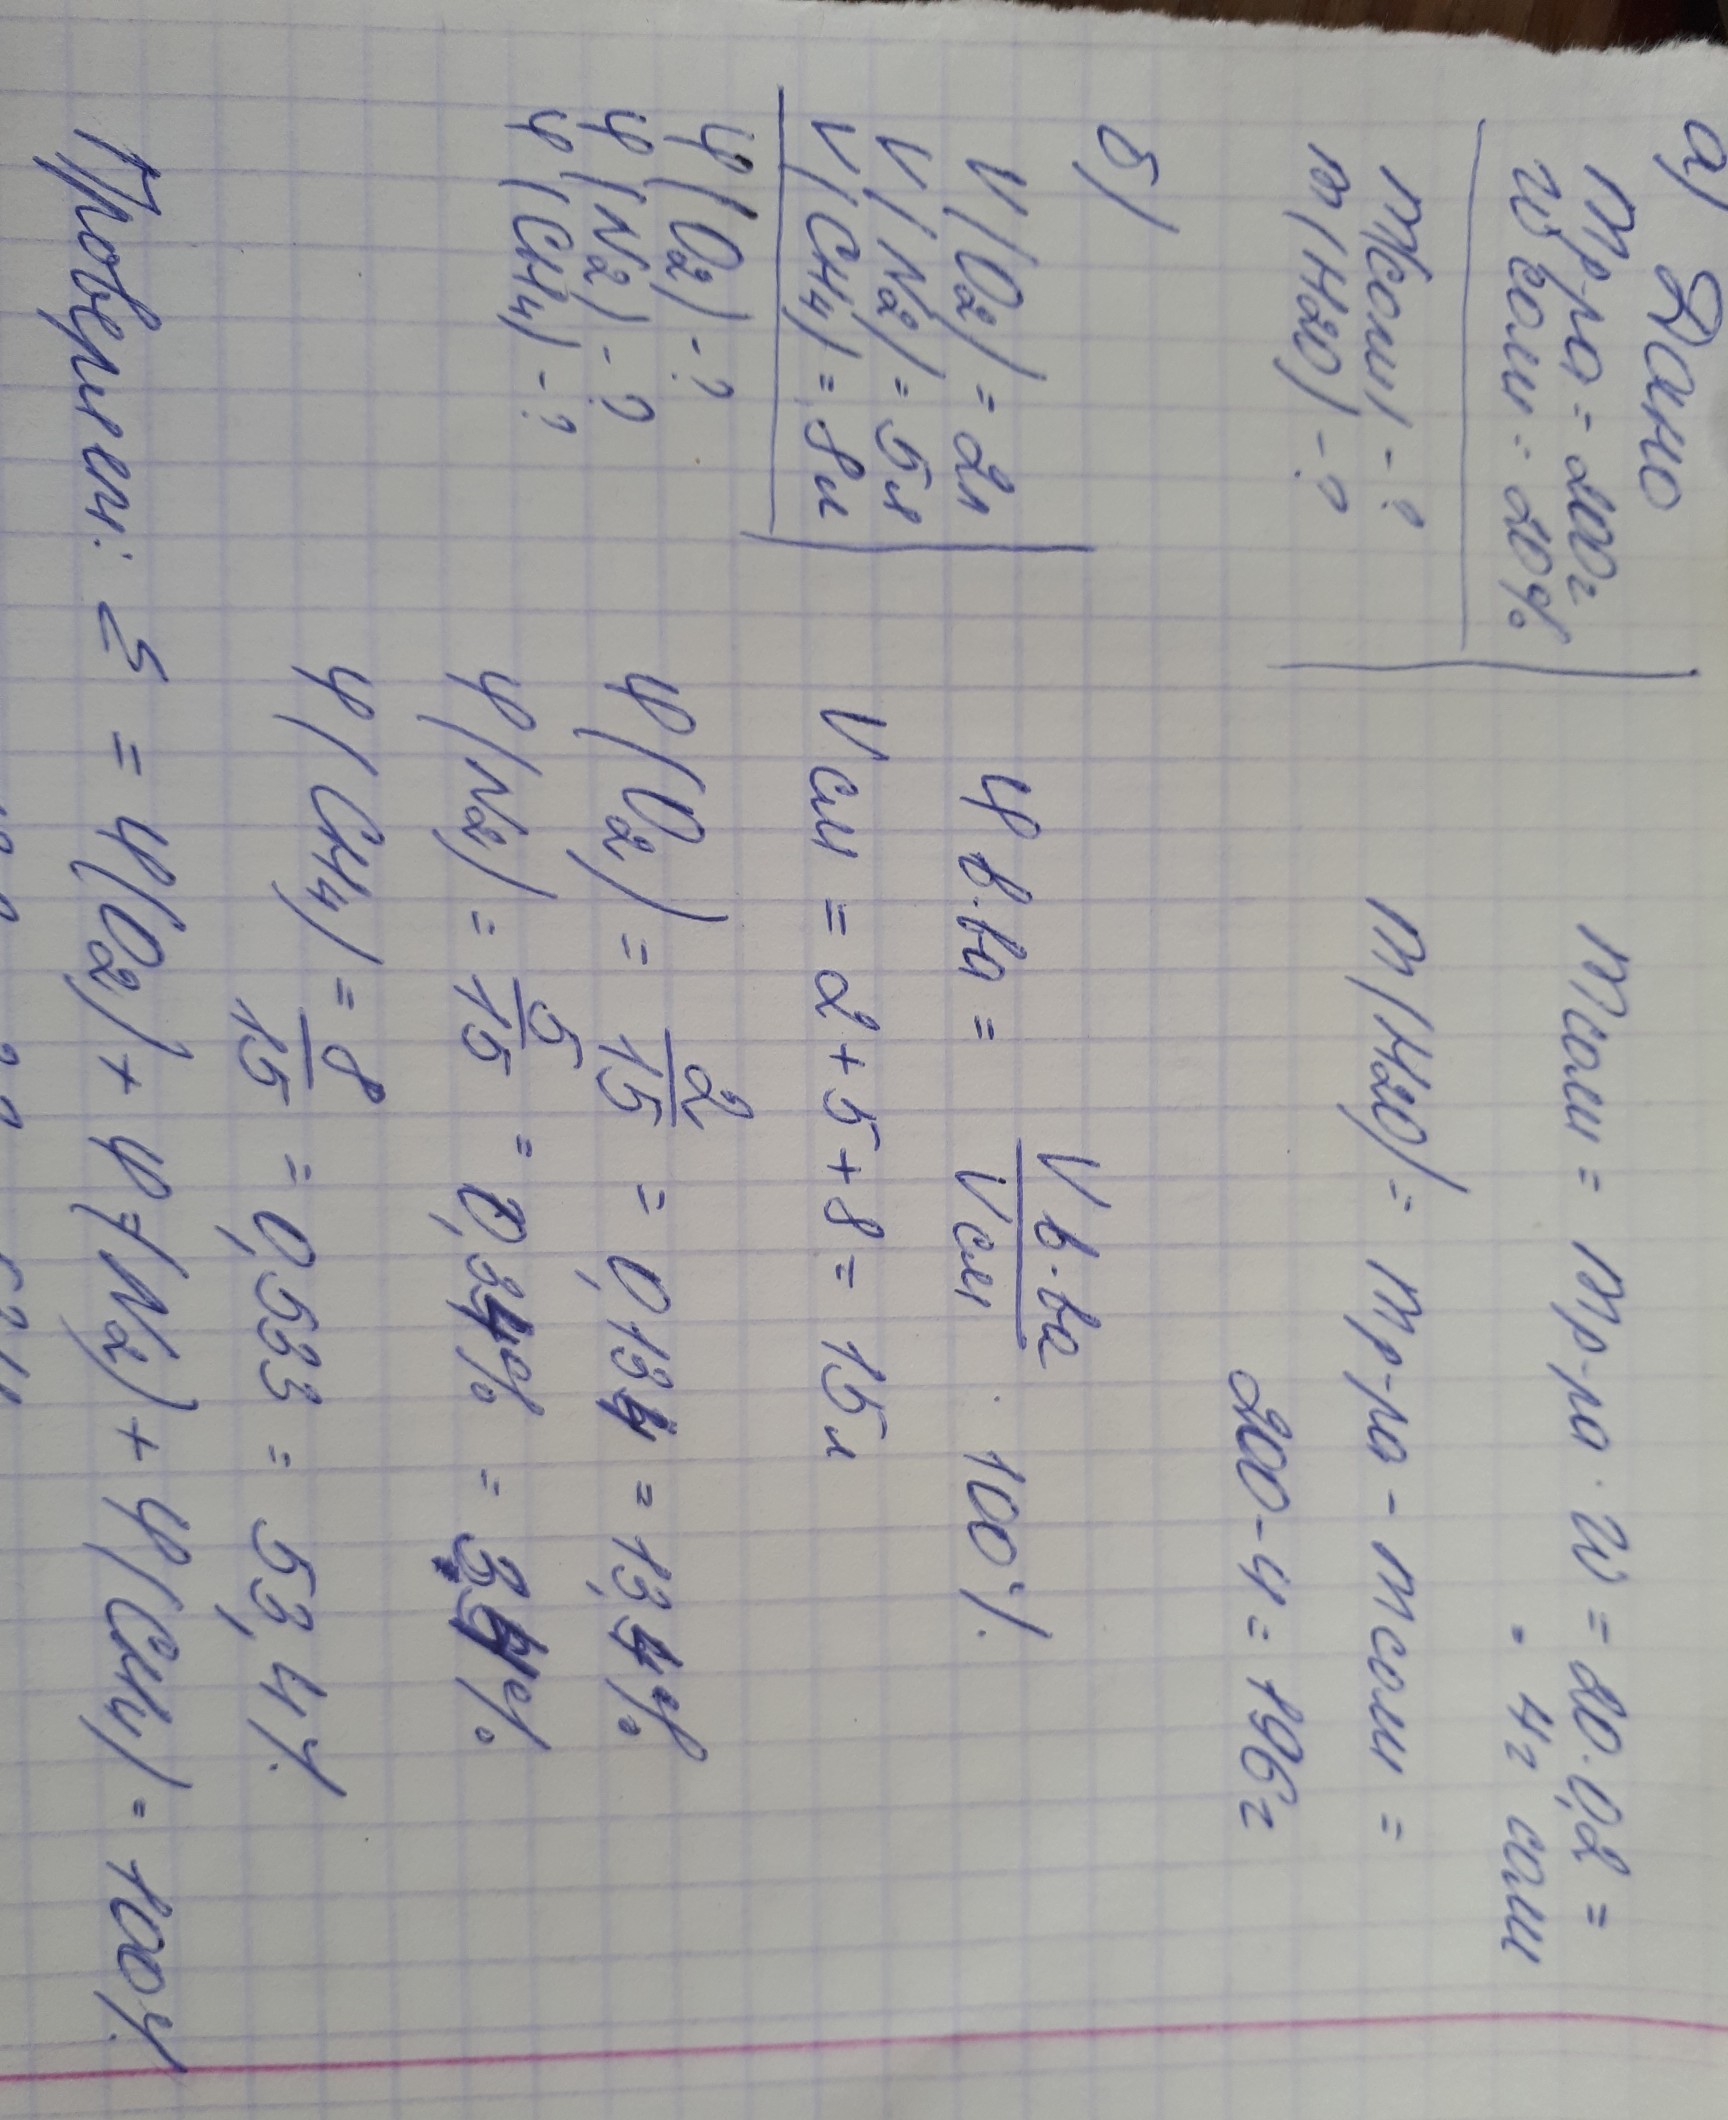 а) Дано
m р-ра = 200г
w соли = 20%
m(соли) - ?
m(H2O) - ?
m соли = m р-ра · w = 20 · 0,2 =
= 4г соли
m(H2O) = m р-ра - m соли =
200 - 4 = 196г
б)
V(O2) = 2л
V(N2) = 5л
V(CH4) = 8л
φ(O2) - ?
φ(N2) - ?
φ(CH4) - ?
φ в-ва = V в-ва / V см · 100%
V см = 2 + 5 + 8 = 15л
φ(O2) = 2/15 = 0,134 = 13,4%
φ(N2) = 5/15 = 0,34% = 34%
φ(CH4) = 8/15 = 0,533 = 53,4%
Проверим: Σ = φ(O2) + φ(N2) + φ(CH4) = 100%